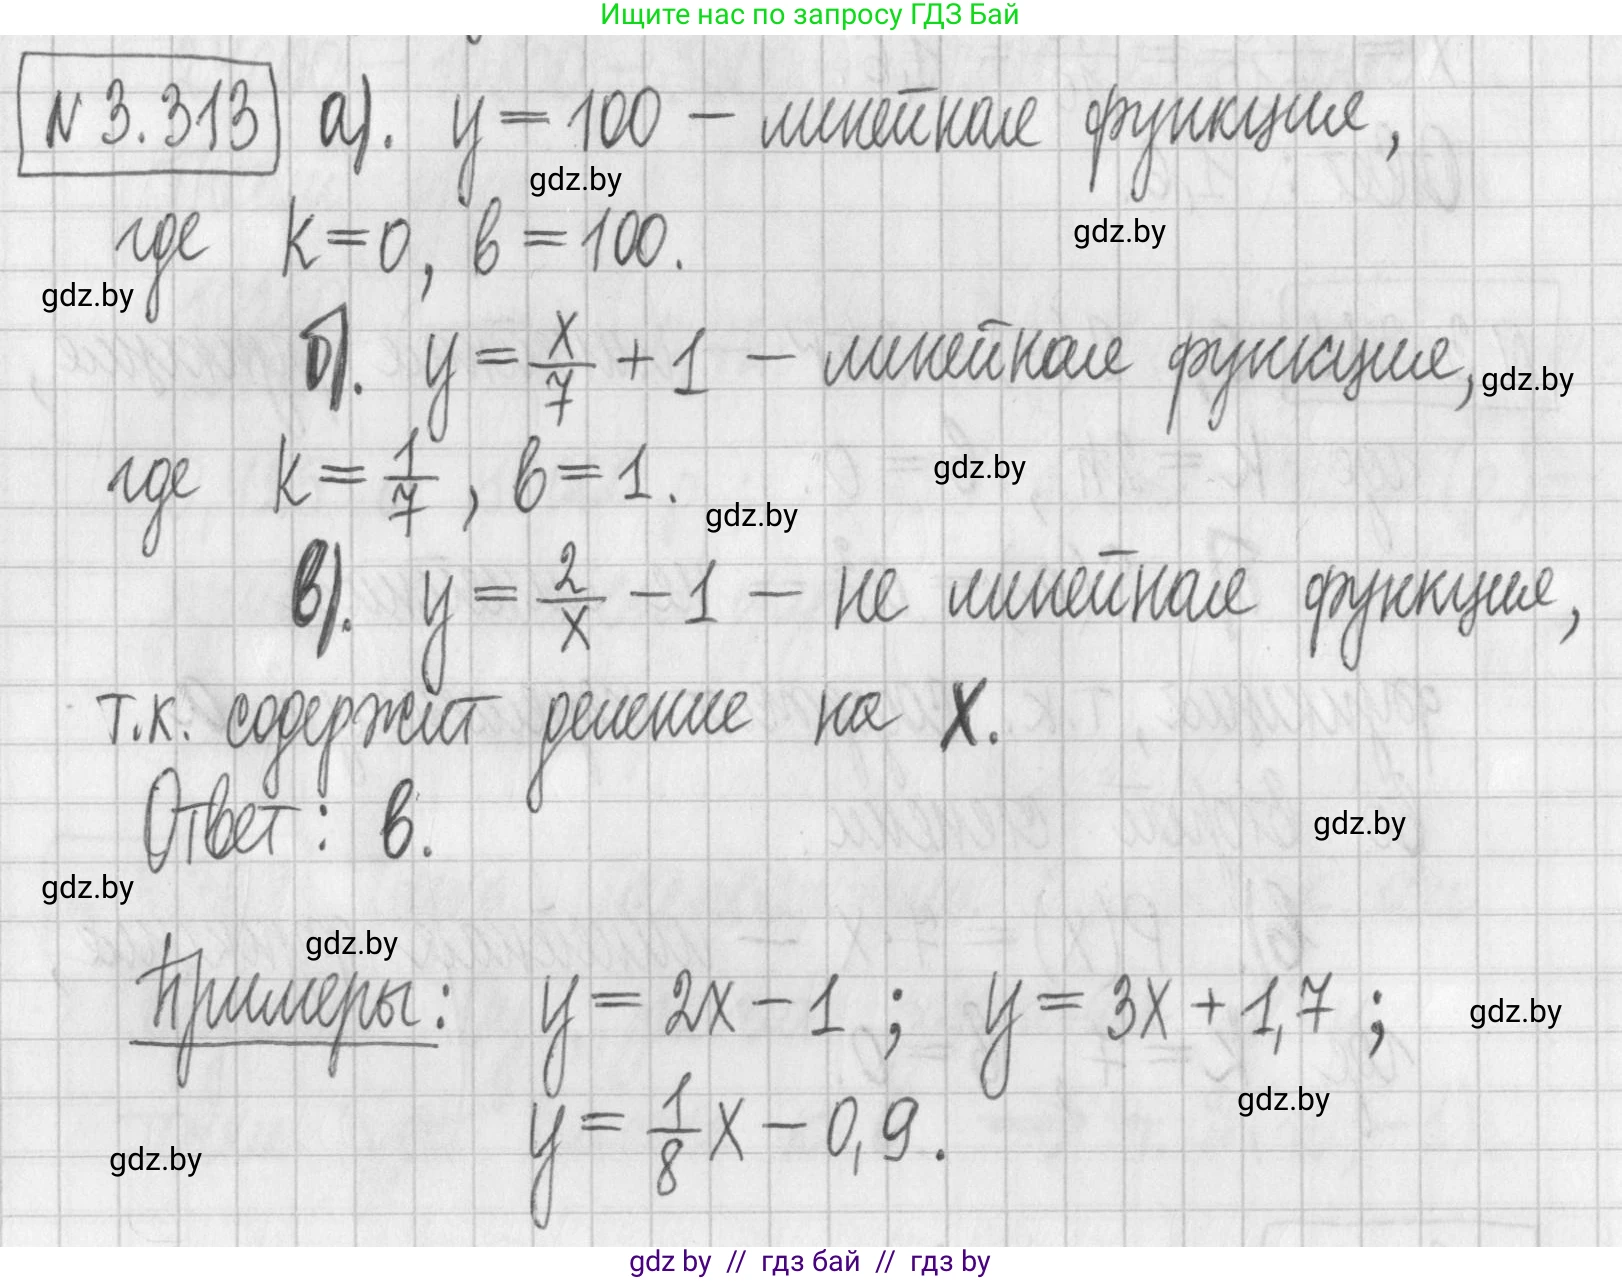 Ищите нас по запросу ГДЗ Бай
N 3.313 а). y = 100 – линейная функция,
gdz.by
где k = 0, в = 100.
gdz.by
gdz.by
б). y = x/7 + 1 – линейная функция,
gdz.by
где k = 1/7, в = 1.
gdz.by
gdz.by
в). y = 2/x – 1 – не линейная функция,
т.к. содержит деление на x.
Ответ: в.
gdz.by
gdz.by
gdz.by
Примеры: y = 2x – 1 ; y = 3x + 1,7 ;
gdz.by
gdz.by
y = 1/8 x – 0,9.
gdz.by
gdz by // гдз бай // гдз by